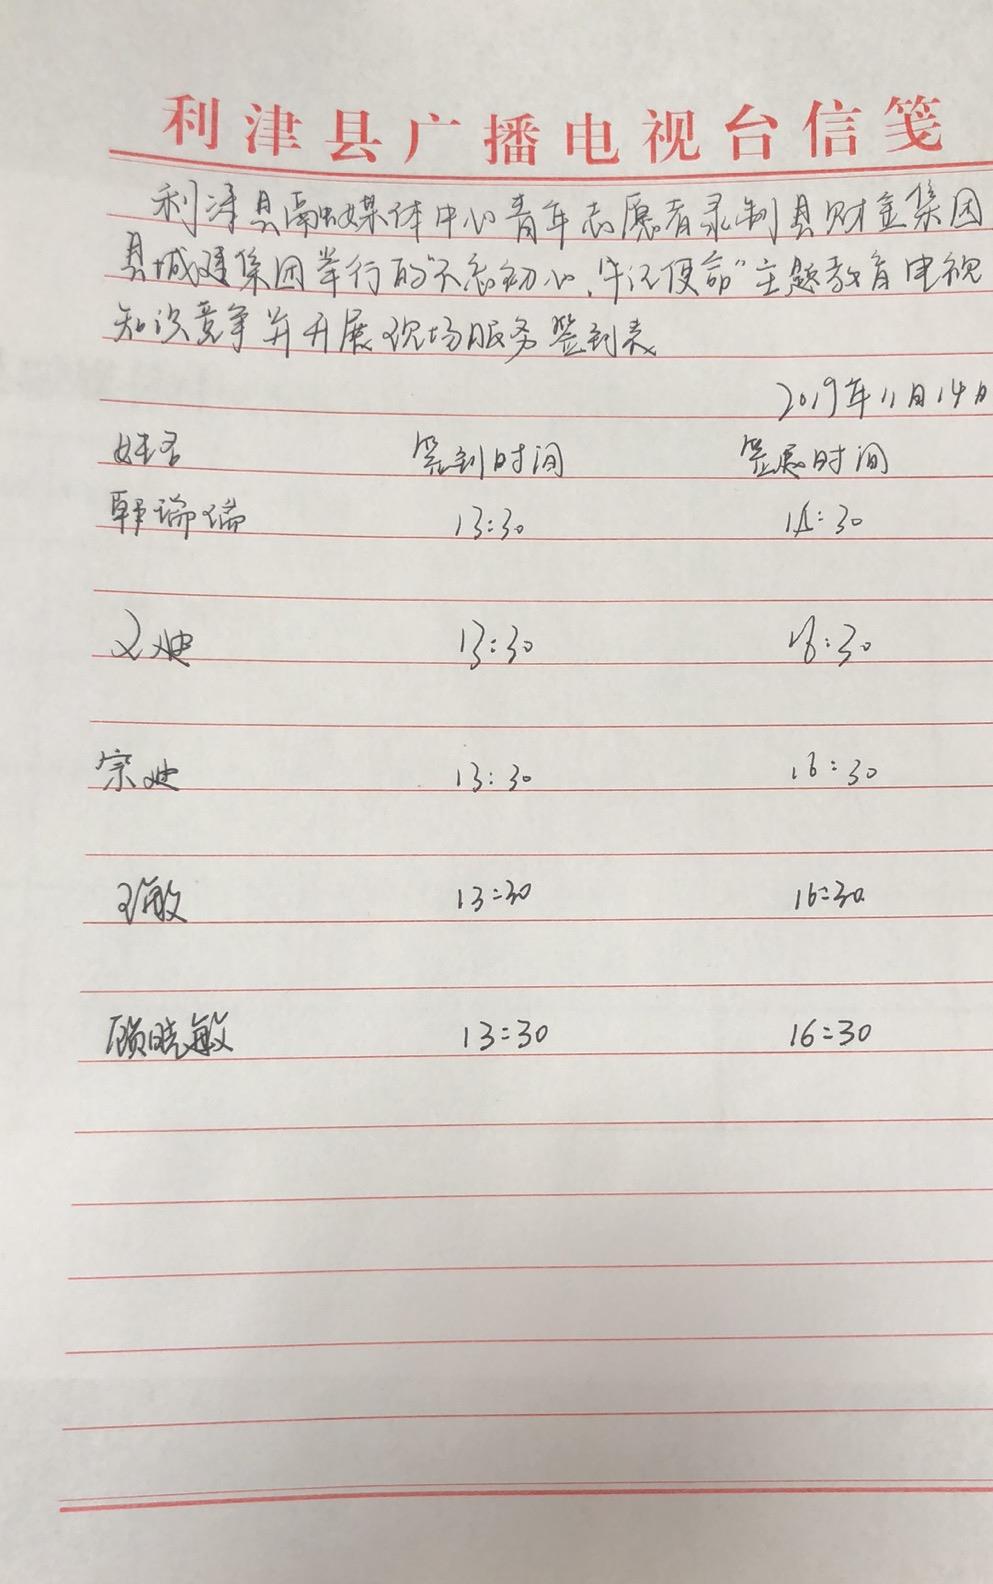 利津县广播电视台信笺
利津县融媒体中心青年志愿者录制县财金集团
县城建集团举行的“不忘初心、牢记使命”主题教育电视
知识竞争并开展现场服务签到表
2019年11月14日
姓名 签到时间 签退时间
韩瑞瑞 13:30 16:30
文迪 13:30 16:30
宗迪 13:30 16:30
王敏 13:30 16:30
顾晓敏 13:30 16:30